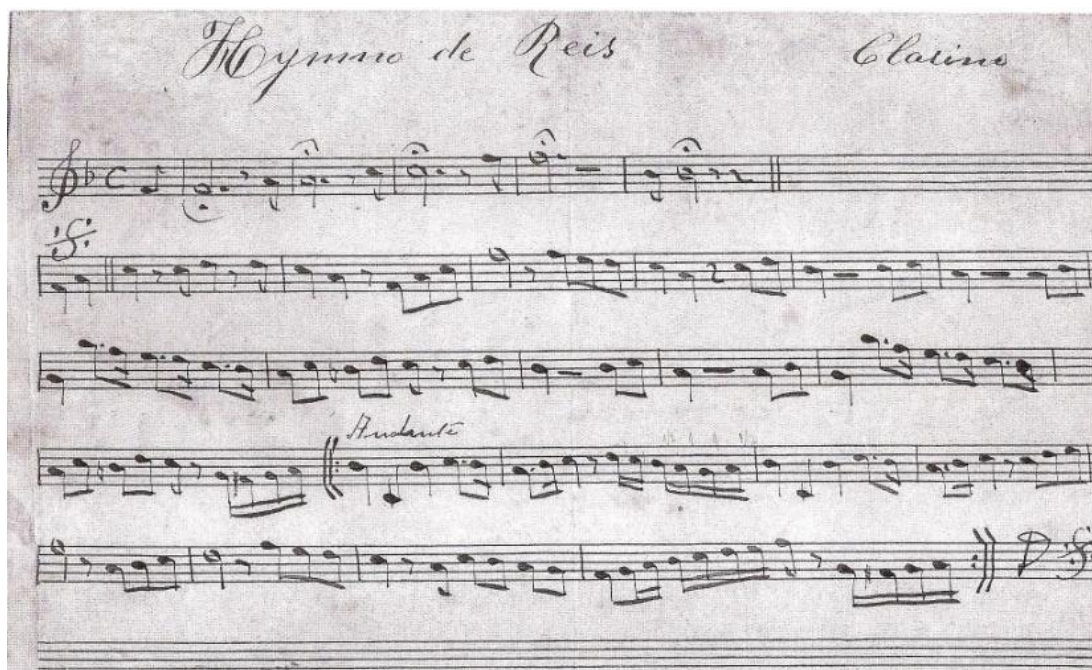 Hymno de Reis Clarino
Andante
D